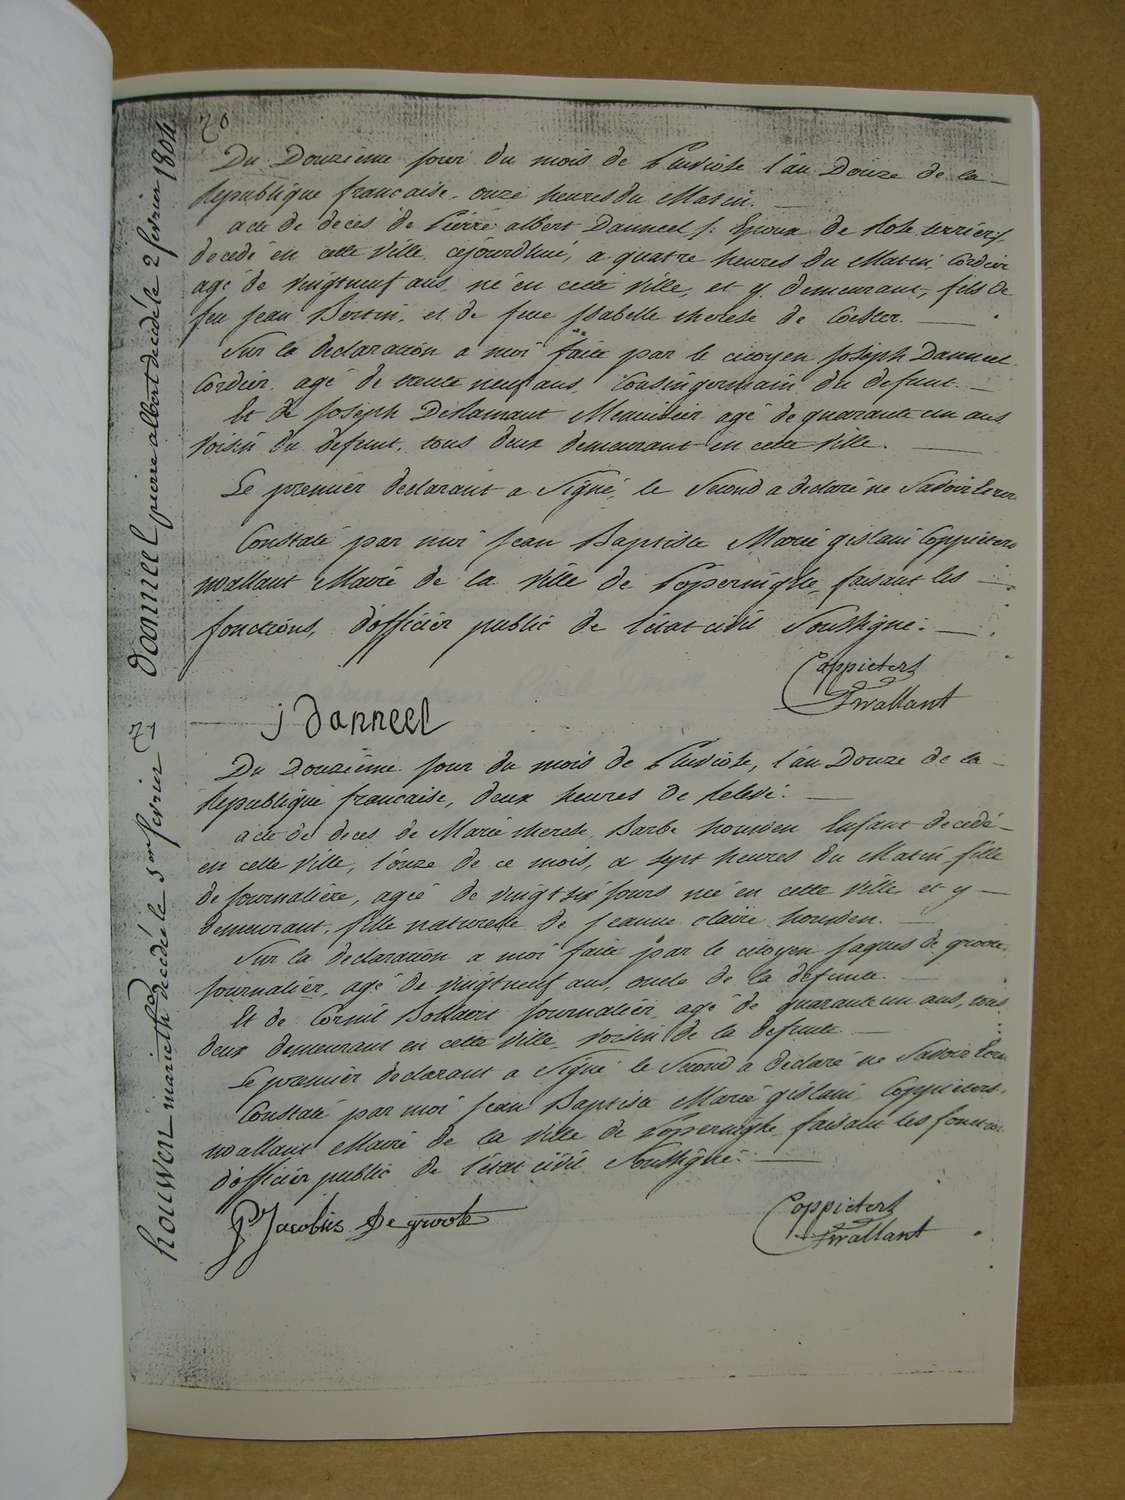 70
Danneel pierre albert decedé le 2 fevrier 1804
Du Douzième jour du mois de Pluviose l'an Douze de la
Republique française, onze heures du Matin.
acte de deces de Pierre albert Danneel, Epoux de Rose
decedé en cette Ville, cejourdhui, a quatre heures du Matin, Cordier
agé de vingtneuf ans, né en cette Ville, et y demeurant, fils de
feu Jean Bertin, et de feue Isabelle therese de Coester.
Sur la declaration a moi faite par le citoyen Joseph Danneel
Cordier, agé de trente neuf ans, Cousingermain du defunt.
Et de Joseph Menuisier agé de quarante un ans
Voisin du defunt, tous deux demeurant en cette Ville.
Le premier declarant a Signé, le Second a declaré ne Savoir
Constaté par moi Jean Baptiste Marie gislain Coppieters
wallant Maire de la Ville de Poperinghe, faisant les
fonctions, d'officier public de l'état civil Soussigné.
Coppieters
wallant
j Danneel
71
houwen marie th decedée le 3 fevrier
Du Douzième jour du mois de Pluviose, l'an Douze de la
Republique française, deux heures de Relevé.
acte de deces de Marie therese Barbe houwen Enfant decedé
en cette Ville, l'onze de ce mois, a sept heures du Matin, fille
de journalière, agée de vingt six jours né en cette Ville et y
demeurant, fille naturelle de Jeanne claire houwen.
Sur la declaration a moi faite par le citoyen Jaques de groote
journalier, agé de vingtneuf ans, oncle de la defunte.
Et de Cornil Bollaert journalier, agé de quarante un ans, tous
deux demeurant en cette Ville, voisin de la defunte.
Le premier declarant a Signé le Second a declaré ne Savoir
Constaté par moi Jean Baptiste Marie gislain Coppieters
wallant Maire de la Ville de Poperinghe, faisant les fonctions
d'officier public de l'état civil Soussigné.
Jacobus De groote
Coppieters
wallant